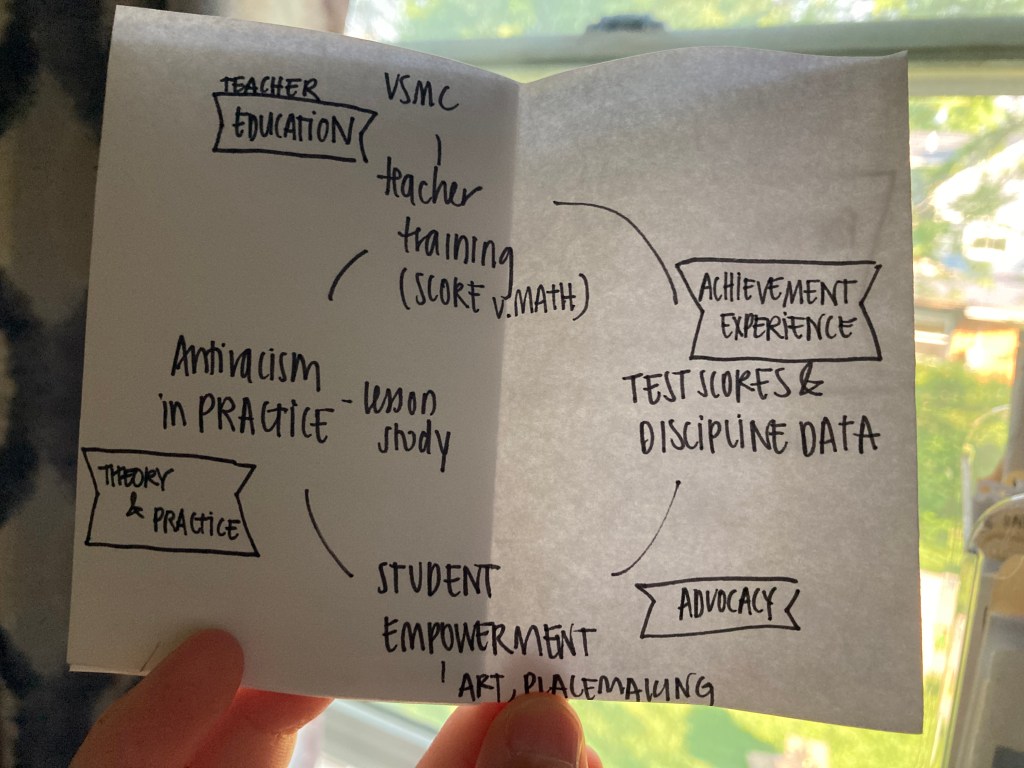 TEACHER
EDUCATION
VSMC
teacher
training
(SCORE v. MATH)
ACHIEVEMENT
EXPERIENCE
TEST SCORES &
DISCIPLINE DATA
Antiracism
in PRACTICE - lesson
study
THEORY
& PRACTICE
STUDENT
EMPOWERMENT
ART, PLACEMAKING
ADVOCACY